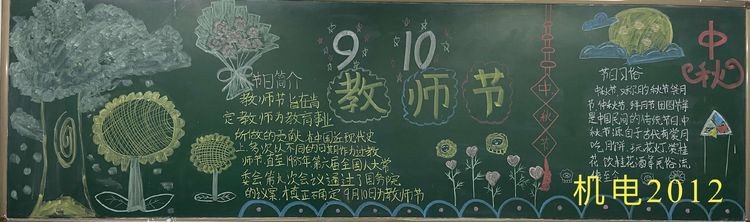 9 10
教师节
节日简介
教师节旨在肯
定教师为教育事业
所做的贡献。在中国近现代史
上,多次以不同的日期作为过教
师节。直至1985年第六届全国人大常
委会第九次会议通过了国务院
的议案,真正确定9月10日为教师节
中秋节
中秋
节日习俗
节,仲秋节,拜月节,团圆节等
是中国民间的传统节日,中
秋节源自古代有赏月
吃月饼、玩花灯、赏桂
花、饮桂花酒等民俗,流
传至今
机电2012